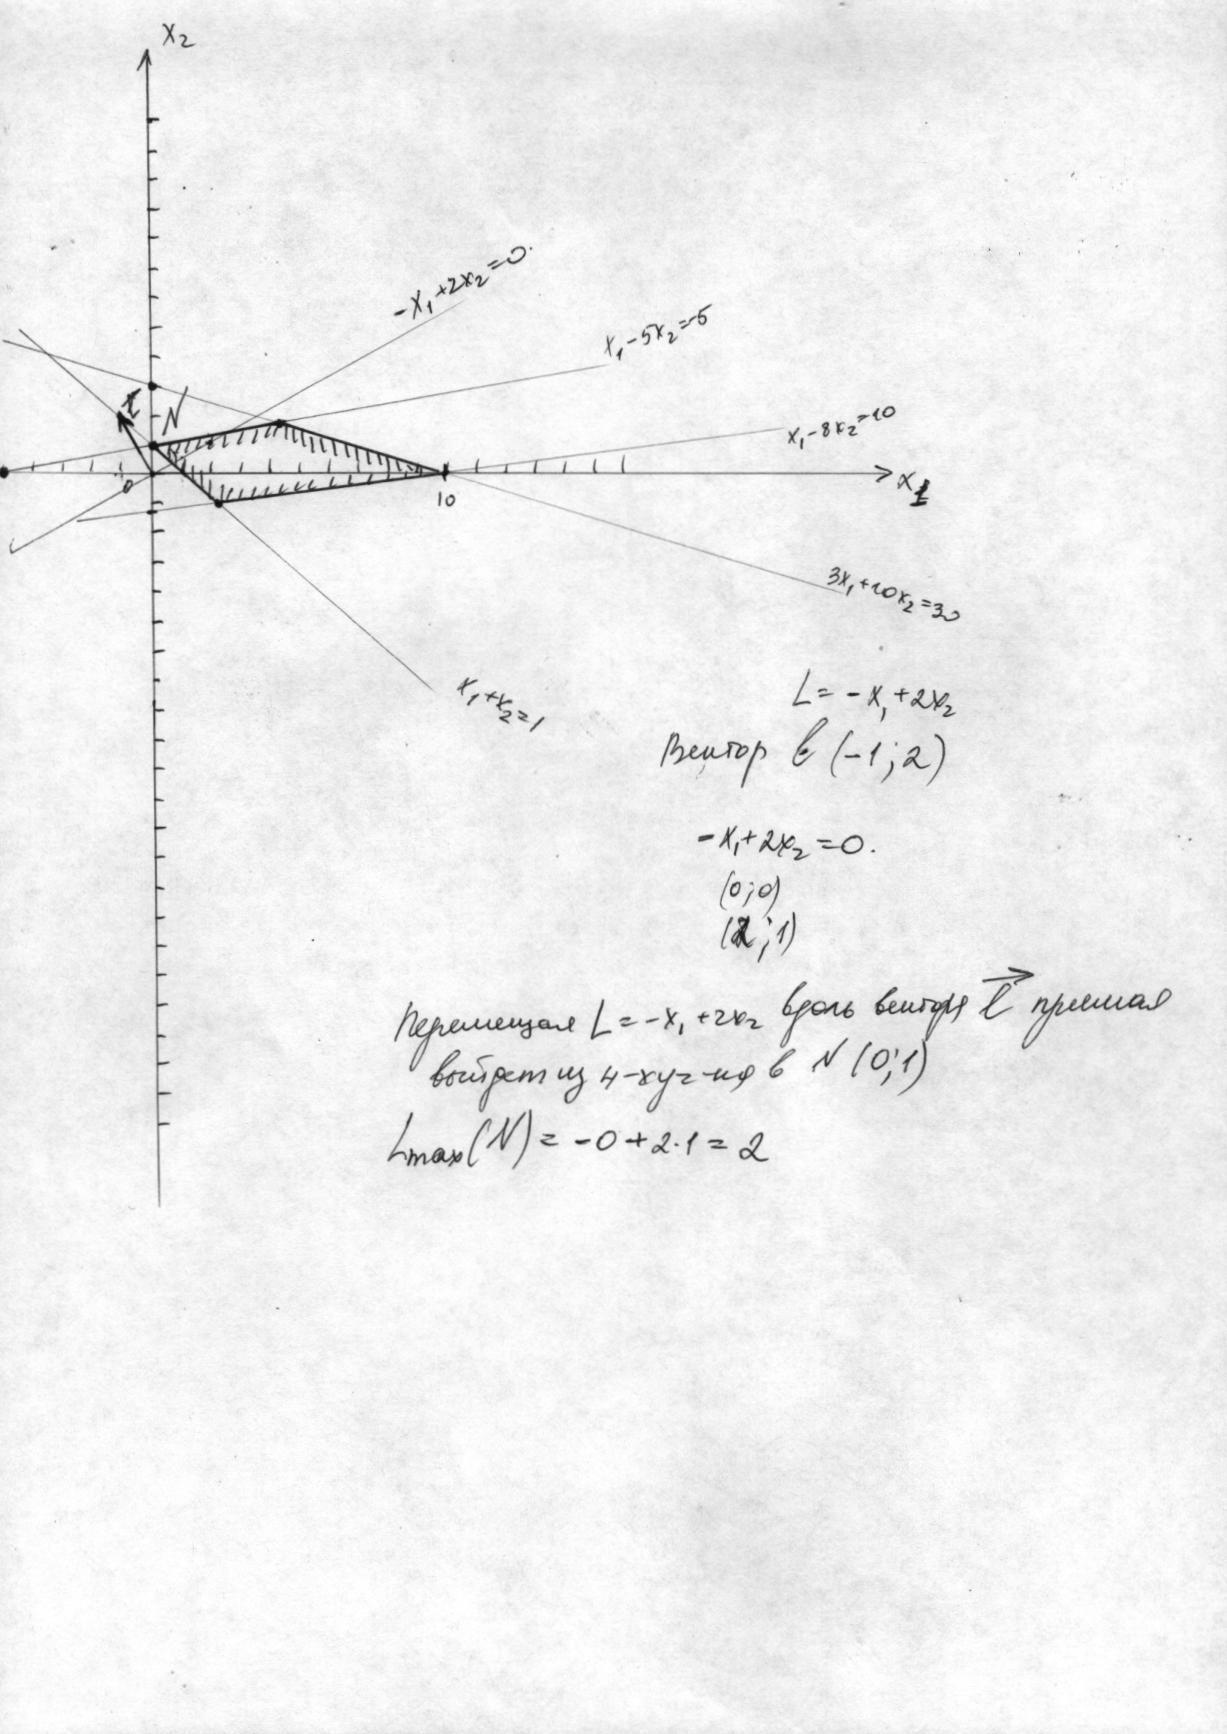 x₂
-x₁+2x₂=0.
x₁-5x₂=-5
N
x₁-8x₂=10
0
10
x₁
3x₁+10x₂=30
x₁+x₂=1
L=-x₁+2x₂
Вектор ℓ (-1;2)
-x₁+2x₂=0.
(0;0)
(2;1)
Перемещая L=-x₁+2x₂ вдоль вектора ℓ прямая
выйдет из 4-хуг-ка в N(0;1)
Lmax(N)=-0+2·1=2